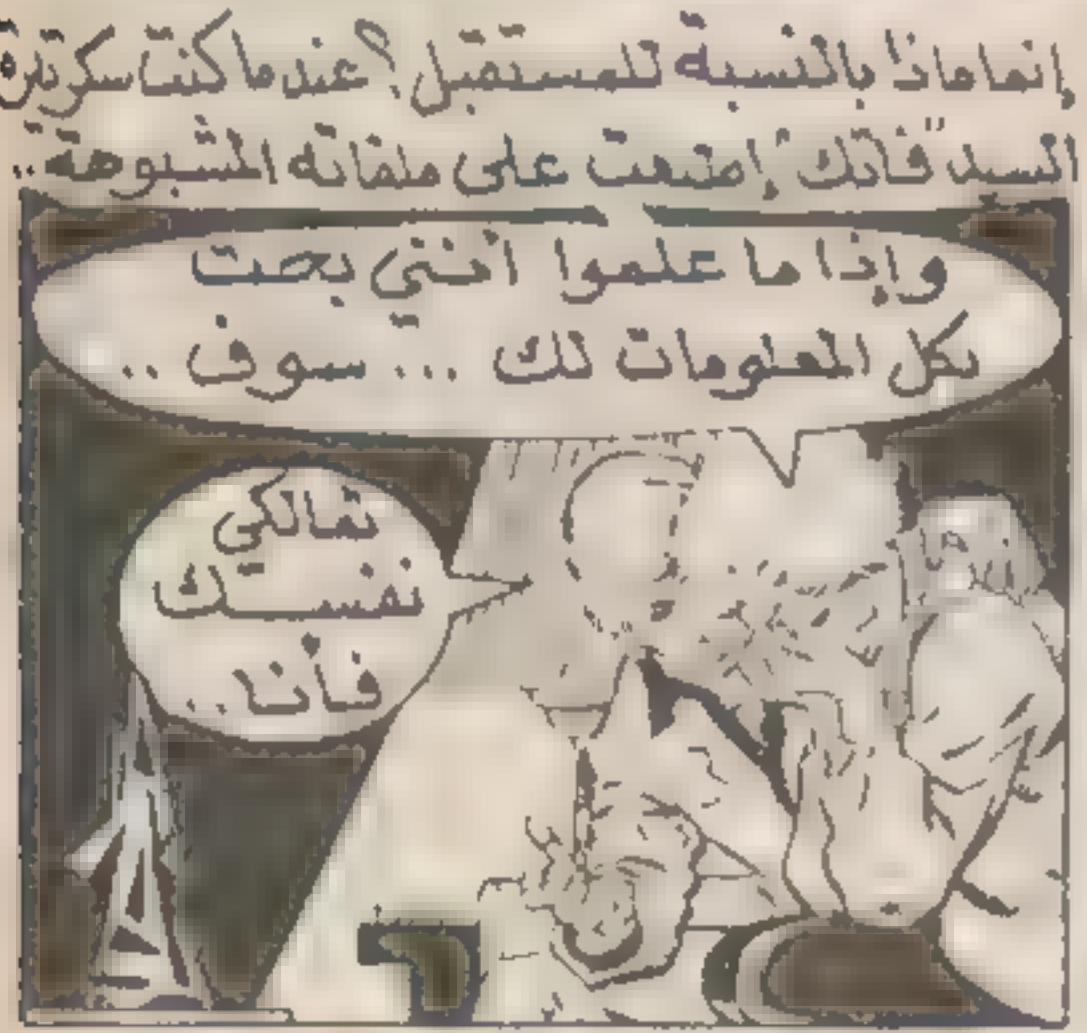 إنما ماذا بالنسبة للمستقبل؟ عندما كنت سكرتيرة
السيد "فاتك" إطلعت على ملفاته المشبوهة..
وإذا ما علموا أنني بحت
بكل المعلومات لك ... سوف ..
تمالكي
نفسك
فأنا..